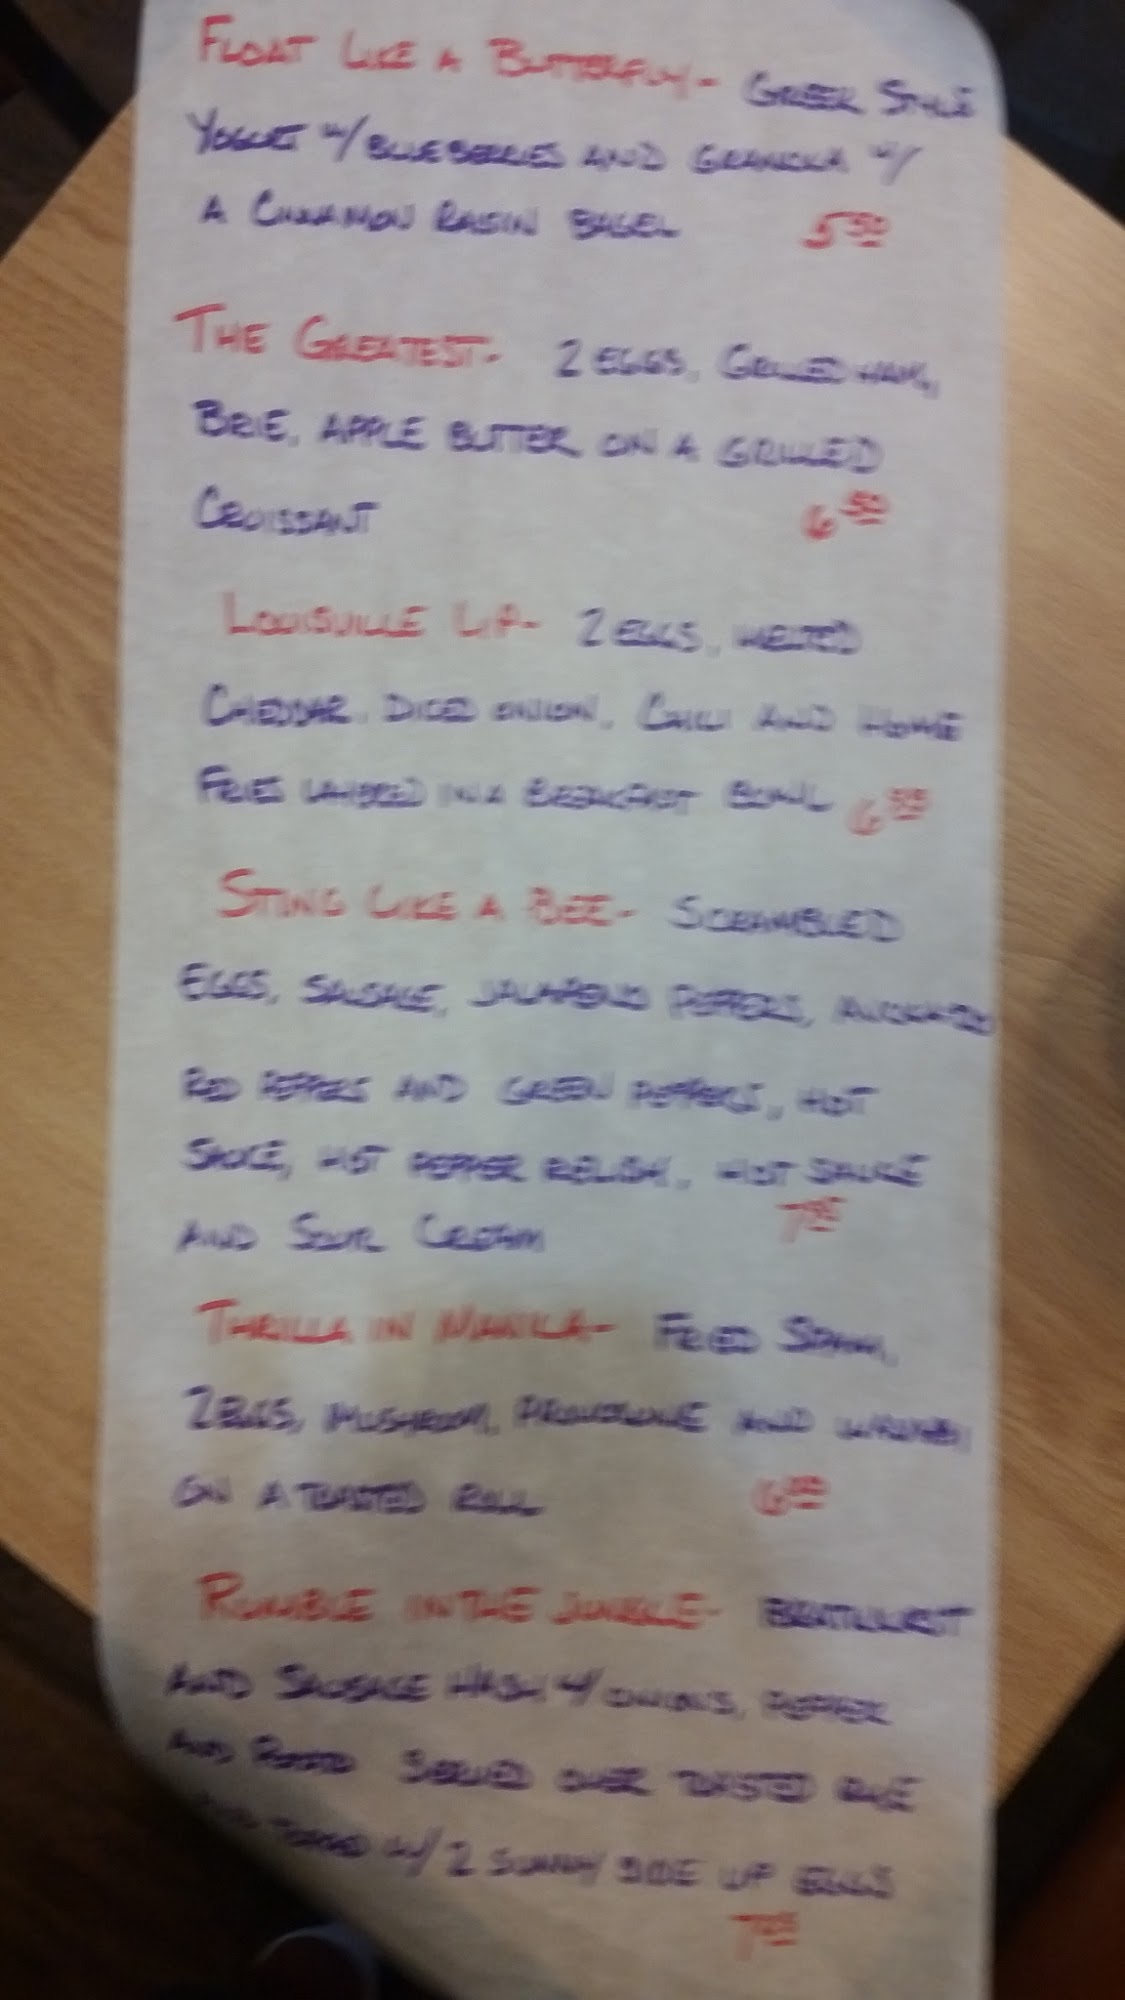 FLOAT LIKE A BUTTERFLY- GREEK STYLE
YOGURT W/BLUEBERRIES AND GRANOLA W/
A CINNAMON RAISIN BAGEL 5 50
THE GREATEST- 2 EGGS, GRILLED HAM,
BRIE, APPLE BUTTER ON A GRILLED
CROISSANT 6 50
LOUISVILLE LIP- 2 EGGS, MELTED
CHEDDAR, DICED ONION, CHILI AND HOME
FRIES LAYERED IN A BREAKFAST BOWL 6
STING LIKE A BEE- SCRAMBLED
EGGS, SAUSAGE, JALAPENO PEPPERS, AVOCADO
RED PEPPERS AND GREEN PEPPERS, HOT
SAUCE, HOT PEPPER RELISH, HOT SAUCE
AND SOUR CREAM 7 95
THRILLA IN MANILA- FRIED SPAM,
2 EGGS, MUSHROOM, PROVOLONE AND
ON A TOASTED ROLL 6
RUMBLE IN THE JUNGLE- BRATWURST
AND SAUSAGE HASH W/ONIONS, PEPPER
AND POTATO SERVED OVER TOASTED RYE
TOPPED W/2 SUNNY SIDE UP EGGS
7